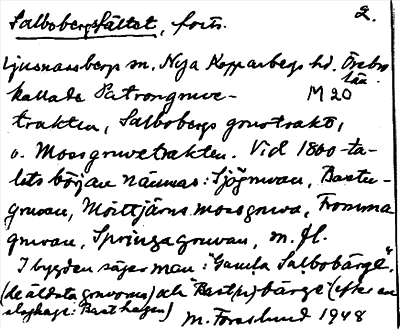 Salbobergsfältet, forts. 2.
Ljusnarsbergs sn. Nya Kopparbergs hd. Örebro
län.
kallade Patrongruve- M 20
trakten, Salbobergs gruvtrakt,
o. Mossgruvetrakten. Vid 1800-ta-
lets början nämnas: Sjögruvan, Bastu-
gruvan, Mörttjärns mossgruva, Fromma
gruvan, Springagruvan, m. fl.
I bygden säjer man: "Gamla Salbobärge",
(de äldsta gruvorna) och "Bast(u)bärge" (efter en
: Basthagen) M. Forslund 1948